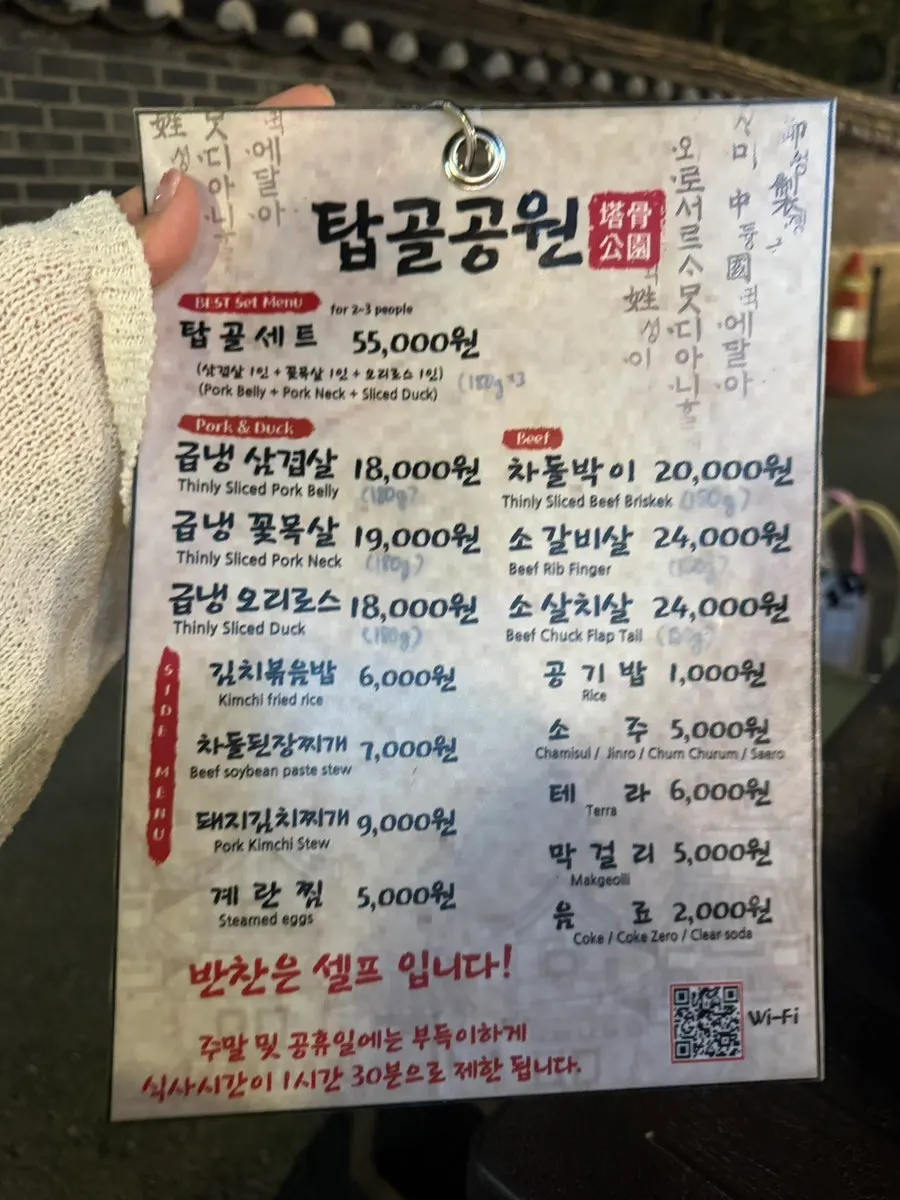 탑골공원
塔骨
公園
BEST Set Menu for 2~3 people
탑골세트 55,000원
(삼겹살 1인 + 꽃목살 1인 + 오리로스 1인)
(Pork Belly + Pork Neck + Sliced Duck) (180g×3
Pork & Duck
급냉 삼겹살 18,000원
Thinly Sliced Pork Belly (180g)
급냉 꽃목살 19,000원
Thinly Sliced Pork Neck (180g)
급냉 오리로스 18,000원
Thinly Sliced Duck (180g)
Beef
차돌박이 20,000원
Thinly Sliced Beef Briskek (150g)
소갈비살 24,000원
Beef Rib Finger
소살치살 24,000원
Beef Chuck Flap Tail
SIDE MENU
김치볶음밥 6,000원
Kimchi fried rice
차돌된장찌개 7,000원
Beef soybean paste stew
돼지김치찌개 9,000원
Pork Kimchi Stew
계란찜 5,000원
Steamed eggs
공기밥 1,000원
Rice
소주 5,000원
Chamisul / Jinro / Chum Churum / Saero
테라 6,000원
Terra
막걸리 5,000원
Makgeolli
음료 2,000원
Coke / Coke Zero / Clear soda
반찬은 셀프 입니다!
주말 및 공휴일에는 부득이하게
식사시간이 1시간 30분으로 제한 됩니다.
Wi-Fi